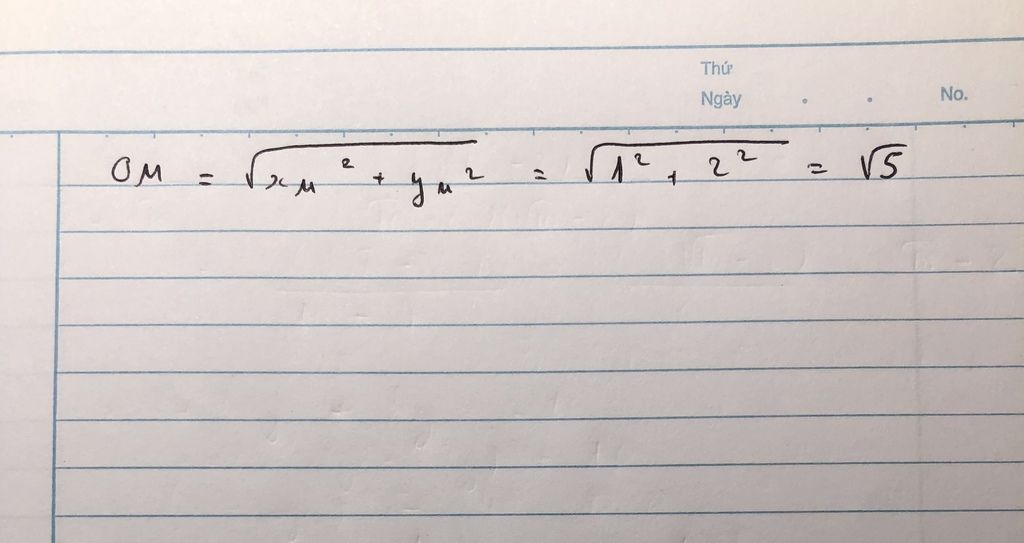 Thứ
Ngày . . No.
OM = √(x_M² + y_M²) = √(1² + 2²) = √5